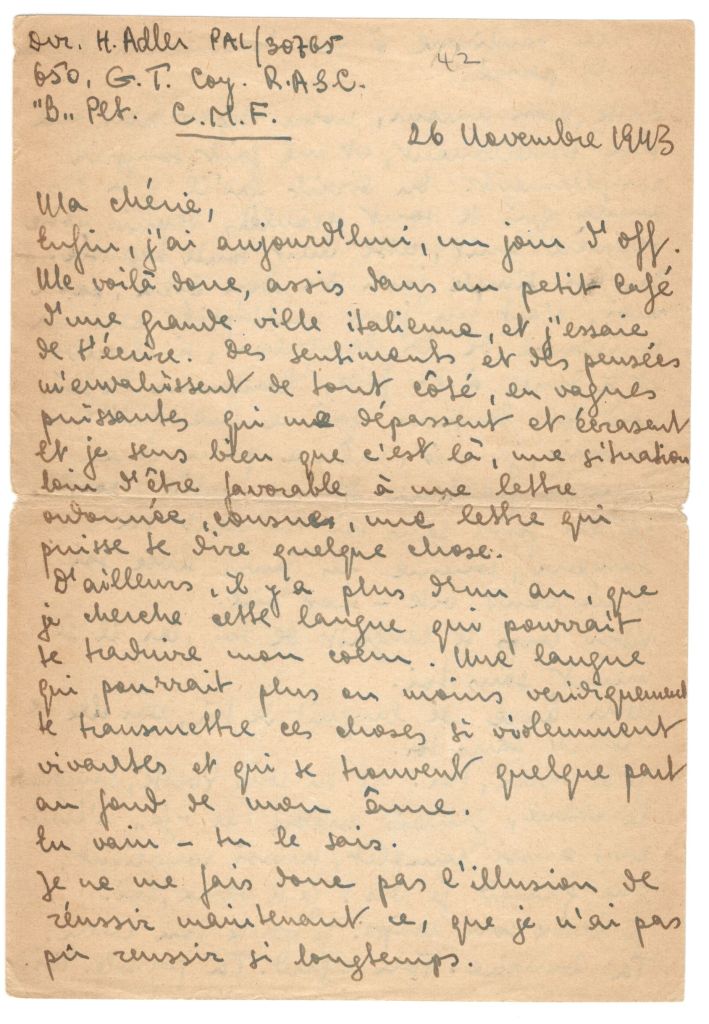 Dvr. H. Adler PAL/30765
650, G. T. Coy. R.A.S.C.
"B„ Plt. C.M.F.
42
26 Novembre 1943
Ma chérie,
Enfin, j'ai aujourd'hui, un jour d'off.
Me voilà donc, assis dans un petit café
d'une grande ville italienne, et j'essaie
de t'écrire. Des sentiments et des pensées
m'envahissent de tout côté, en vagues
puissantes qui me dépassent et écrasent
et je sens bien que c'est là, une situation
loin d'être favorable à une lettre
ordonnée, une lettre qui
puisse te dire quelque chose.
D'ailleurs, il y a plus d'un an, que
je cherche cette langue qui pourrait
te traduire mon coeur. Une langue
qui pourrait plus ou moins veridiquement
te transmettre ces choses si violemment
vivantes et qui se trouvent quelque part
au fond de mon âme.
En vain – tu le sais.
Je ne me fais donc pas l'illusion de
réussir maintenant ce, que je n'ai pas
pû reussir si longtemps.